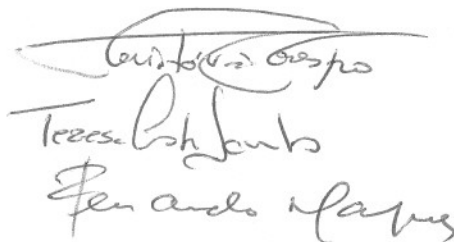 Cristóvão Crespo
Teresa Costa Santos
Fernando Marques